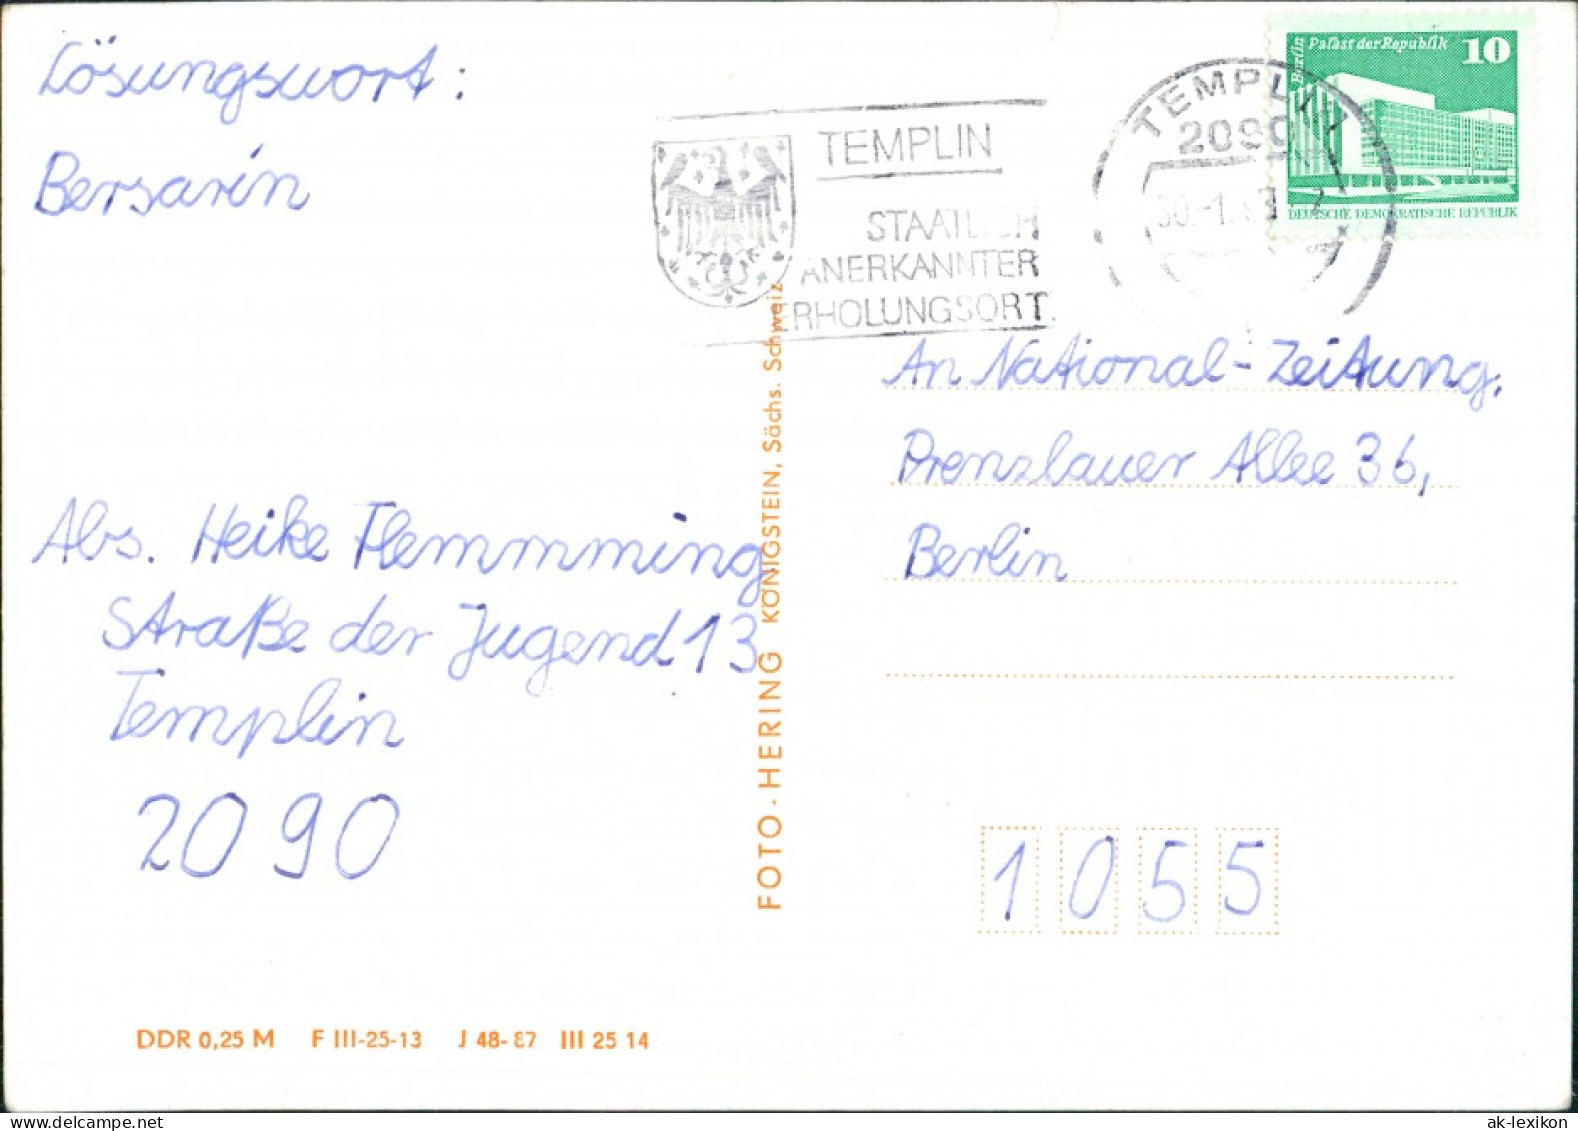 Lösungswort:
Bersarin
Abs. Heike Flemmming
Straße der Jugend 13
Templin
2090
DDR 0,25 M F III-25-13 J 48-87 III 25 14
FOTO-HERING KÖNIGSTEIN, Sächs. Schweiz
TEMPLIN
STAATLICH
ANERKANNTER
ERHOLUNGSORT
TEMPLIN
2090
Berlin Palast der Republik 10
DEUTSCHE DEMOKRATISCHE REPUBLIK
An National-Zeitung,
Prenzlauer Allee 36,
Berlin
1055
ak-lexikon